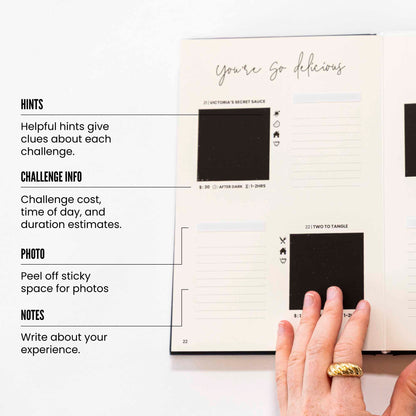 You're So delicious
HINTS
Helpful hints give
clues about each
challenge.
CHALLENGE INFO
Challenge cost,
time of day, and
duration estimates.
PHOTO
Peel off sticky
space for photos
NOTES
Write about your
experience.
21 | VICTORIA'S SECRET SAUCE
$: 30
AFTER DARK
1-2HRS
22 | TWO TO TANGLE
22